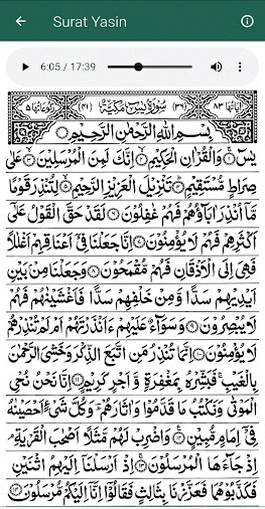 Surat Yasin
6:05 / 17:39
اٰیاتها ٨٣ (٣٦) سُوْرَةُ يٰسٓ مَكِّيَّةٌ (٤١) رکوعاتها ٥
بِسْمِ اللّٰهِ الرَّحْمٰنِ الرَّحِيْمِ
يٰسٓ ۝١ وَالْقُرْاٰنِ الْحَكِيْمِ ۝٢ اِنَّكَ لَمِنَ الْمُرْسَلِيْنَ ۝٣ عَلٰى
صِرَاطٍ مُّسْتَقِيْمٍ ۝٤ تَنْزِيْلَ الْعَزِيْزِ الرَّحِيْمِ ۝٥ لِتُنْذِرَ قَوْمًا
مَّاۤ اُنْذِرَ اٰبَآؤُهُمْ فَهُمْ غٰفِلُوْنَ ۝٦ لَقَدْ حَقَّ الْقَوْلُ عَلٰۤى
اَكْثَرِهِمْ فَهُمْ لَا يُؤْمِنُوْنَ ۝٧ اِنَّا جَعَلْنَا فِيْۤ اَعْنَاقِهِمْ اَغْلٰلًا
فَهِيَ اِلَى الْاَذْقَانِ فَهُمْ مُّقْمَحُوْنَ ۝٨ وَجَعَلْنَا مِنْۢ بَيْنِ
اَيْدِيْهِمْ سَدًّا وَّمِنْ خَلْفِهِمْ سَدًّا فَاَغْشَيْنٰهُمْ فَهُمْ
لَا يُبْصِرُوْنَ ۝٩ وَسَوَآءٌ عَلَيْهِمْ ءَاَنْذَرْتَهُمْ اَمْ لَمْ تُنْذِرْهُمْ
لَا يُؤْمِنُوْنَ ۝١٠ اِنَّمَا تُنْذِرُ مَنِ اتَّبَعَ الذِّكْرَ وَخَشِيَ الرَّحْمٰنَ
بِالْغَيْبِ ۚ فَبَشِّرْهُ بِمَغْفِرَةٍ وَّاَجْرٍ كَرِيْمٍ ۝١١ اِنَّا نَحْنُ نُحْيِ
الْمَوْتٰى وَنَكْتُبُ مَا قَدَّمُوْا وَاٰثَارَهُمْ ؕ وَكُلَّ شَيْءٍ اَحْصَيْنٰهُ
فِيْۤ اِمَامٍ مُّبِيْنٍ ۝١٢ وَاضْرِبْ لَهُمْ مَّثَلًا اَصْحٰبَ الْقَرْيَةِ ۘ
اِذْ جَآءَهَا الْمُرْسَلُوْنَ ۝١٣ اِذْ اَرْسَلْنَاۤ اِلَيْهِمُ اثْنَيْنِ
فَكَذَّبُوْهُمَا فَعَزَّزْنَا بِثَالِثٍ فَقَالُوْۤا اِنَّاۤ اِلَيْكُمْ مُّرْسَلُوْنَ ۝١٤